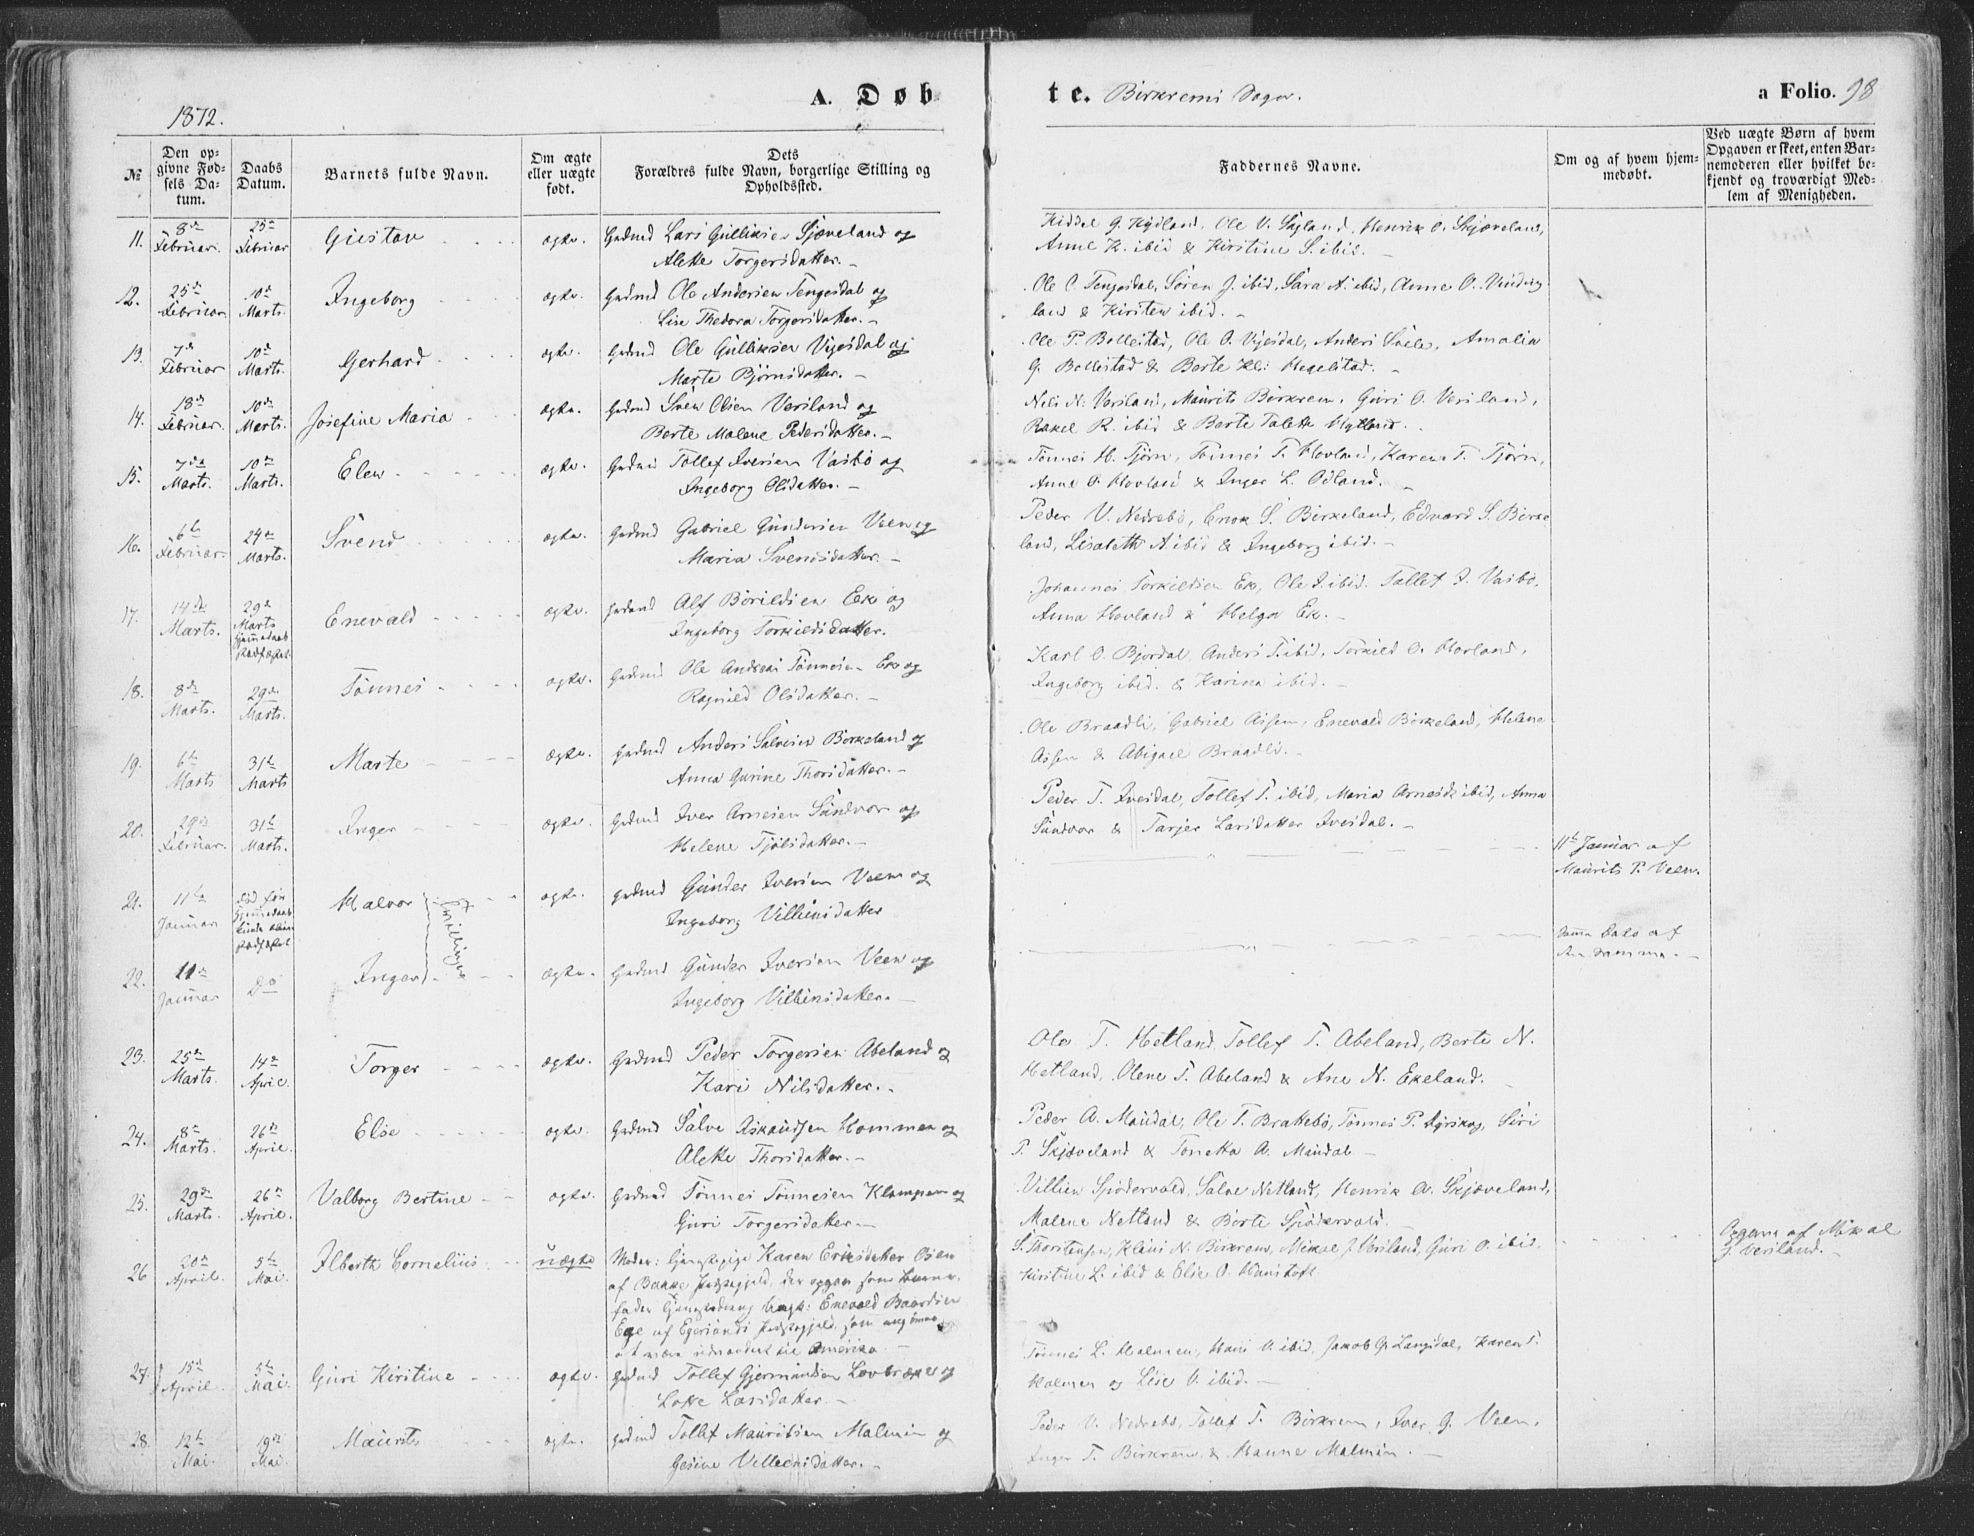 1872.
A. Døb
№
Den opgivne Fødsels Datum.
Daabs Datum.
Barnets fulde Navn.
Om ægte eller uægte født.
Dets Forældres fulde Navn, borgerlige Stilling og Opholdssted.
11. 8de Februar. 25de Februar Gustav ægte. Gaardmd Lars Gulliksen Sjæveland og
Alette Torgersdatter.
12. 25de Februar. 10de Marts. Ingeborg ægte. Gaardmd Ole Andersen Tengesdal og
Lise Thedora Torgersdatter.
13. 7de Februar 10de Marts. Gerhard ægte. Gaardmd Ole Gulliksen Vigesdal og
Marte Bjørnsdatter.
14. 18de Februar. 10de Marts. Josefine Maria ægte. Gaardmd Sven Olsen Versland og
Berte Malene Pedersdatter.
15. 7de Marts. 10de Marts. Elen ægte. Tollef Iversen Vasbø og
Ingeborg Olsdatter.
16. 6te Februar. 24de Marts. Svend ægte. Gaardmd Gabriel Gundersen Veen og
Maria Svendsdatter.
17. 14de Marts. 29de Marts Enevald ægte. Alf Børildsen Ek og
Ingeborg Torkildsdatter.
18. 8de Marts. 29de Marts. Tønnes ægte. Gaardmd Ole Andreas Tønnesen Ek og
Ragnild Olsdatter.
19. 6te Marts 31te Marts Marte ægte. Gaardmd Anders Salvesen Birkeland og
Anna Gurine Thorsdatter.
20. 29de Februar. 31te Marts. Inger ægte. Gaardmd Iver Arnesen Sundvor og
Helene Tjølsdatter.
21. 11te Januar død før Halvor Tvillinger ægte. Gaardmd Gunder Iversen Veen og
Ingeborg Villumsdatter
22. 11te Januar Do Inger ægte. Gaardmd Gunder Iversen Veen og
Ingeborg Villumsdatter.
23. 25de Marts. 14de April. Torger ægte. Gaardmd Peder Torgersen Abeland og
Kari Nilsdatter.
24. 8de Marts. 26de April. Else ægte. Gaardmd Salve Askeudsen Hommen og
Alette Thorsdatter.
25. 29de Marts. 26de April. Valborg Bertine ægte. Gaardmd Tønnes Tønnesen Klampen og
Guri Torgersdatter.
26 20de April. 5te Mai. Alberth Cornelius uægte Moder: Karen Eriksdatter Osen
af Bakke Præstegjeld, der opgav som Barne-
fader Enevald Baardsen
Ege af Egersunds Præstegjeld, som
at være udvandret til Amerika.
27. 15de April 5te Mai. Guri Kirstine ægte. Gaardmd Tollef Gjermundsen Løvbrække og
Larsdatter.
28. 12te Mai. 19de Mai. Maurits ægte. Gaardmd Tollef Mauritsen Malmin og
Gesine Villumsdatter.
te. Birkrems Sogn.
a Folio. 98
Faddernes Navne.
Om og af hvem hjemmedøbt.
Ved uægte Børn af hvem Opgaven er skeet, enten Barnemoderen eller hvilket bekjendt og troværdigt Medlem af Menigheden.
G. Hydland, Ole V. Henrik O. Skjæveland,
Anne K. ibid & Kirstine S. ibid.
Ole C. Tengesdal, Søren J. ibid, Sara A. ibid, Anne O.
land & Kirsten ibid.
Ole P. Bollestad, Ole O. Vigesdal, Anders Amalia
G. Bollestad & Berte Hegelstad.
Nels N. Versland, Maurits Birkrem, Guri O. Versland,
Rakel R. ibid & Berte Talette Hytland.
Tønnes H. Tjørn, Tønnes T. Hovland, Karen T. Tjørn,
Anne O. Hovland & Inger L. Odland.
Peder V. Nedrebø, Enok S. Birkeland, Edvard S. Birke
land, Lisabeth A ibid & Ingeborg ibid.
Johannes Torkildsen Ek, Ole I. ibid. Tollef I. Vasbø,
Anna Hovland & Helga Ek.
Karl O. Bjordal, Anders T. ibid, Torkild O. Hovland,
Ingeborg ibid. & Karina ibid.
Ole Braadli, Gabriel Aisen, Enevald Birkeland, Helene
Aisen & Abigael Braadli.
Peder T. Ivesdal, Tollef T. ibid, Maria Arnesdt ibid, Anna
Sundvor & Tarjer Larsdatter Ivesdal.
11te Januar af
Maurits P. Veen.
Samme Dato af
den samme.
Ole T. Hetland, Tollef T. Abeland, Berte N.
Hetland, Olene T. Abeland & Ane N. Ekeland.
Peder A. Maudal, Ole T. Brattebø, Tønnes P. Siri
P. Skjæveland & Tonetta A. Maudal
Villien Spødervold, Salve Netland, Henrik A. Skjæveland,
Malene Netland & Berte Spødervold.
S. Thorstensen, Klaus N. Birkrem, Mikal J. Versland, Guri O. ibid,
Kirstine L. ibid & Else O.
Opgave af Mikal
J. Versland.
Tønnes L. Malmen, Hans V. ibid, Jakob G. Langsdal, Karen T.
Malmen og Lise V. ibid.
Peder V. Nedrebø, Tollef T. Birkrem, Iver G. Veen,
Inger T. Birkrem & Hanne Malmin.